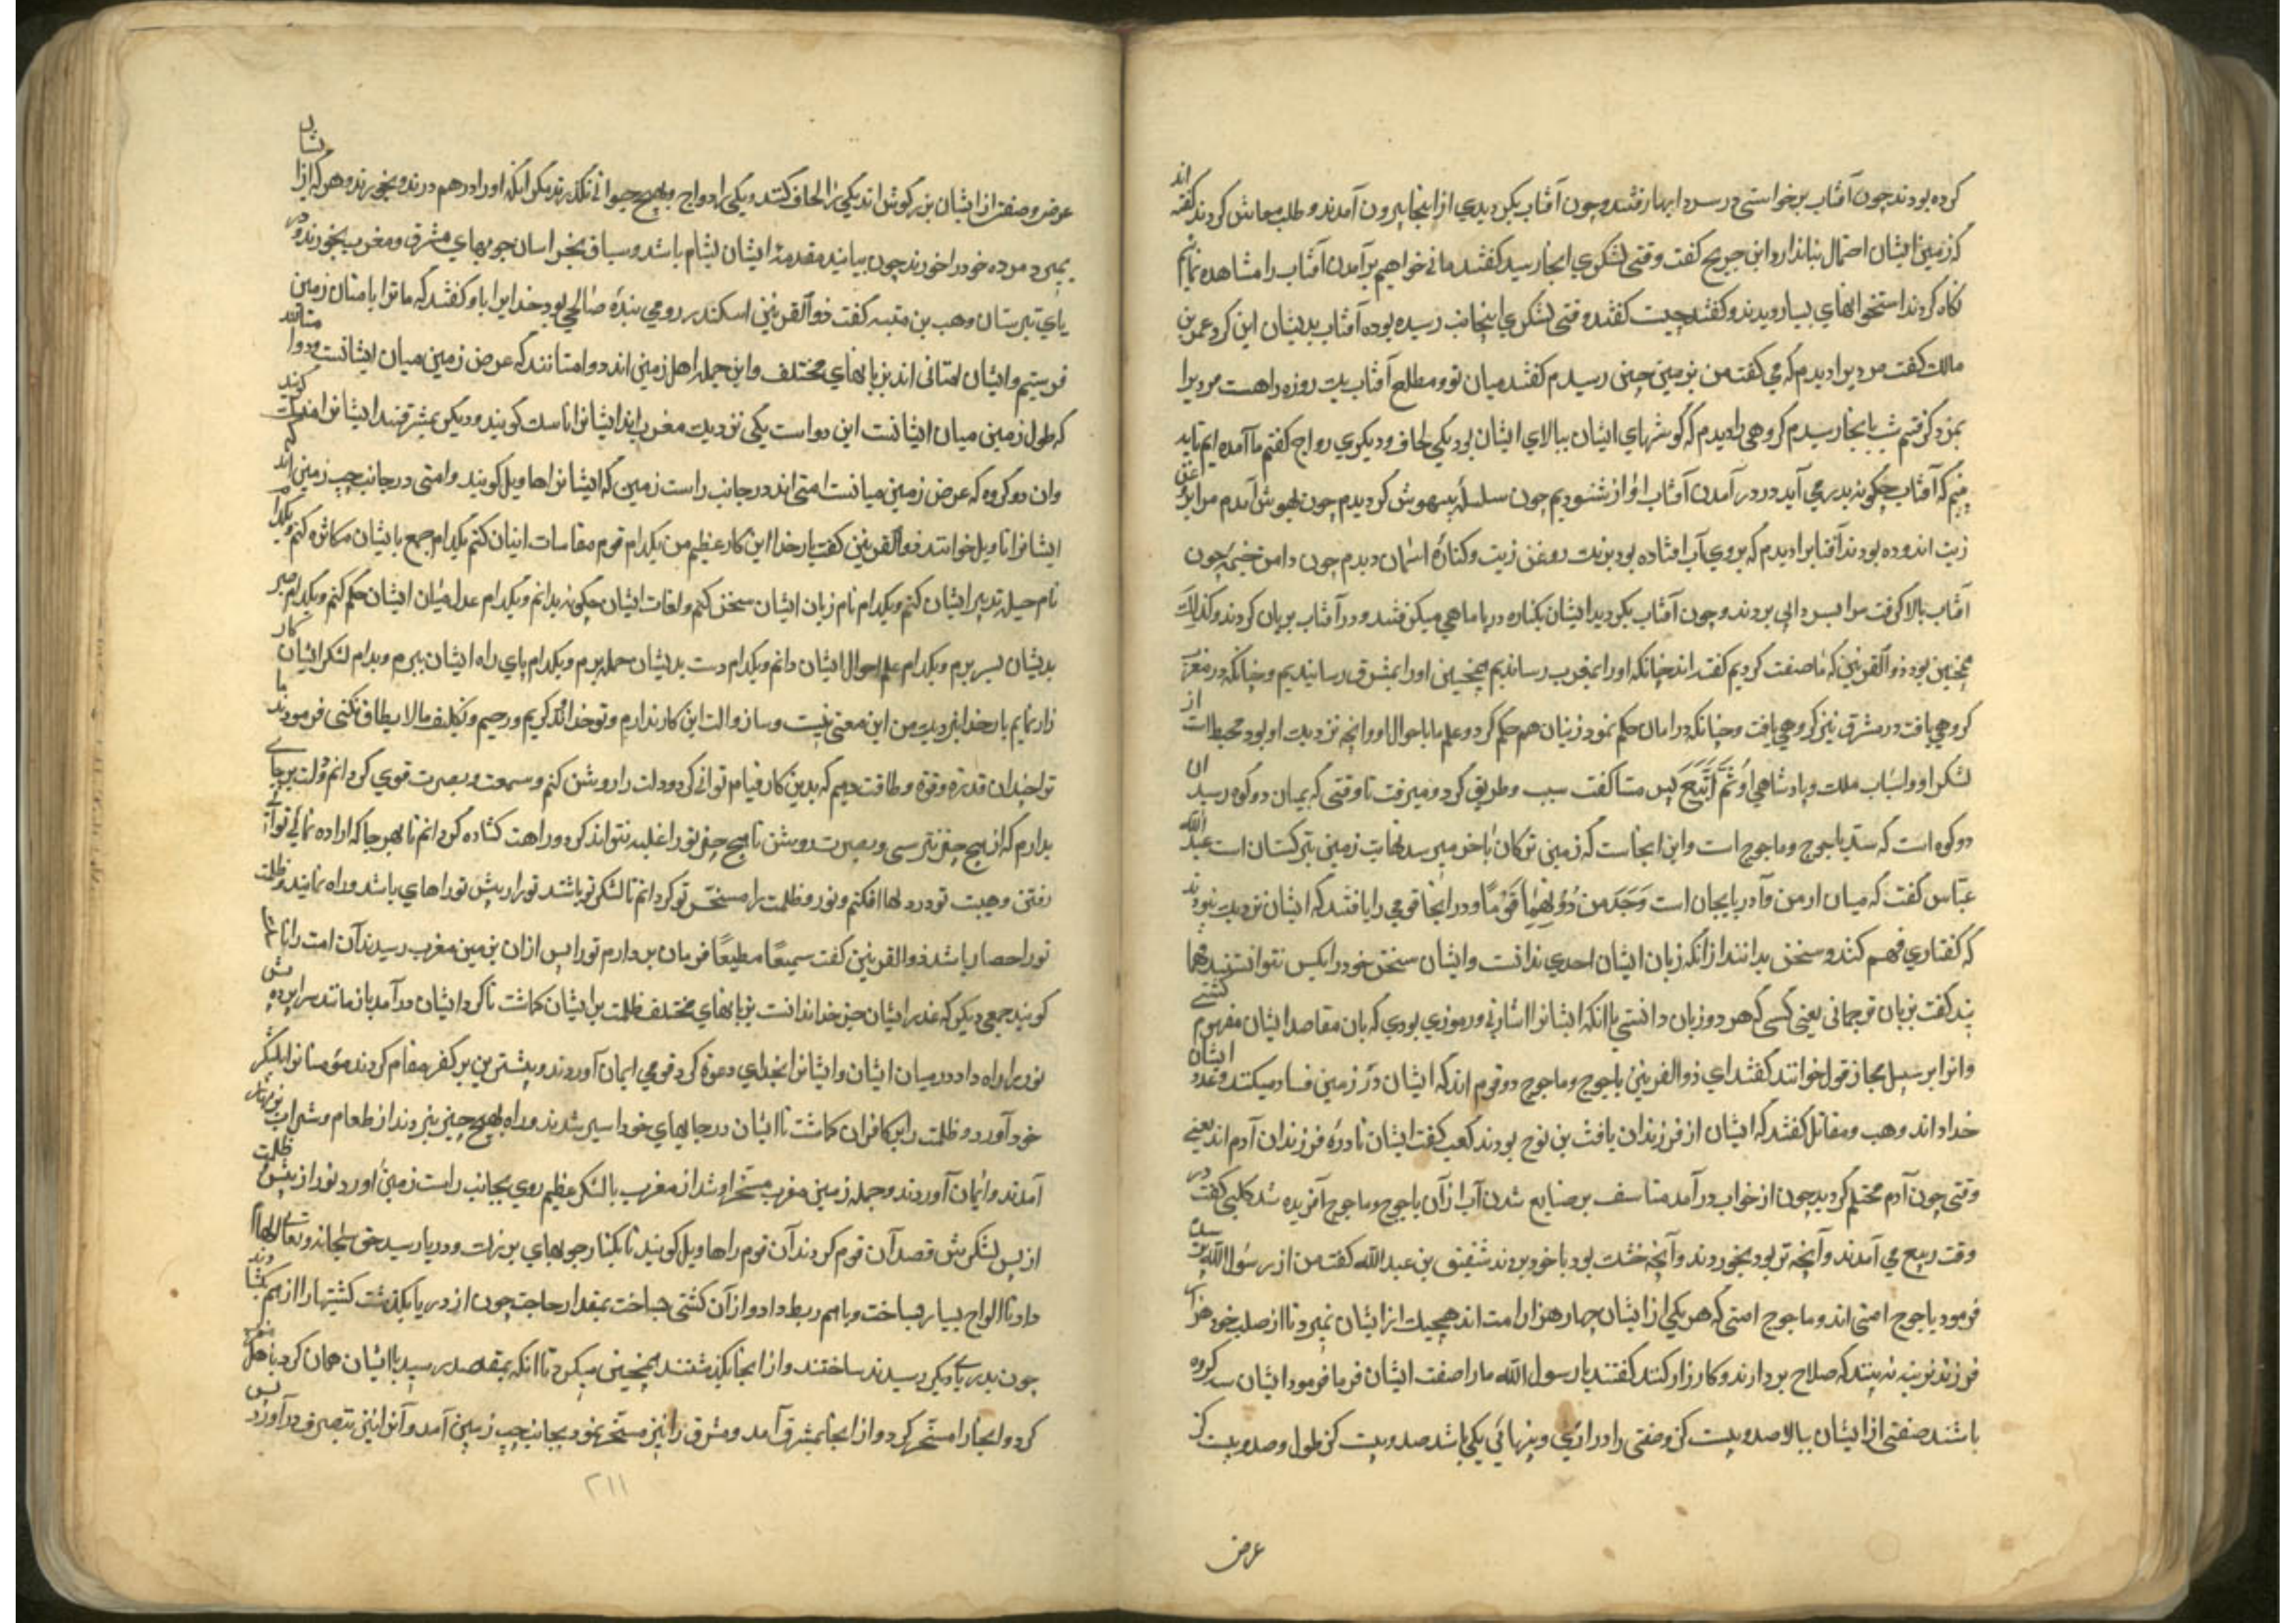 کرده بودند چون آفتاب برخواستی در سردابها رفتند و چون آفتاب بکردیدی از اینجا بیرون آمدند و طلب معاش کردند کفته اند
که زمین ایشان احتمال بنا ندارد ابن جریج کفت وقتی لشکری اینجا رسید کفتند ما نی خواهیم برآمدن آفتاب را مشاهده نمائیم
نکاه کردند استخوانهای بسیار دیدند و کفتند چیست کفتند وقتی لشکری اینجانب رسیده بوده آفتاب بدیشان این کرد عمر بن
مالك کفت مردیرا دیدم که می کفت من بزمین چین رسیدم کفتند میان تو و مطلع آفتاب یك روزه راهست مردیرا
بمزد کرفتم شب بانجا رسیدم کروهی را دیدم که کوشهای ایشان ببالای ایشان بود یکی لحاف و دیکری رواج کفتم ما آمده ایم تا به
بینم که آفتاب چکونه بدر می آید در درآمدن آفتاب اواز شنودیم چون سلسله بیهوش کردیدم چون بهوش آمدم مرا بروغن
زیت اندوده بودند آفتابرا دیدم که بر روی آب افتاده بود برنك روغن زیت و کنارهٔ اسمان دیدم چون دامن خیمه چون
آفتاب بالا کرفت مرا بسردابی بردند و چون آفتاب بکردید ایشان بکناره دریا ماهی میکرفتند و در آفتاب بریان کردند و کذلك
همچنین بود ذوالقرنین که ما صفت کردیم کفته اند چنانکه اورا بمغرب رساندیم همچنین اورا بمشرق رسانیدیم و چنانکه در مغرب
کروهی یافت در مشرق نیز کروهی یافت و چنانکه در امان حکم نمود زنیان هم حکم کرد و علم ما باحوال او و انچه نزدیك او بود محیط است از
لشکر او و اسباب ملك و پادشاهی او ثُمَّ أَتْبَعَ پس متابعت سبب و طریق کرد و میرفت تا وقتی که بمیان دو کوه رسید ان
دو کوه است که سد یاجوج و ماجوج است و این انجاست که زمین ترکان باخر میرسد نهایت زمین ترکستان است عبد الله
عبّاس کفت که میان ارمن و آذربایجان است وَجَدَ مِنْ دُونِهِمَا قَوْمًا و در انجا قومی را یافتند که ایشان نزدیك نبودند
که کفتاری فهم کنند و سخن بدانند از انکه زبان ایشان احدی ندانست و ایشان سخن خود را بکس نتوانستند فهما
نید کفت بزبان ترجمانی یعنی کسی که هر دو زبان دانستی یا انکه ایشانرا اشارتی و رموزی بودی که بان مقاصد ایشان مفهوم کشتی
وانرا بر سبیل مجاز قول خوانند کفتند ای ذوالقرنین یاجوج و ماجوج دو قوم اند که ایشان در زمین فساد میکنند و عدد ایشان
خدا داند وهب و مقاتل کفتند که ایشان از فرزندان یافث بن نوح بودند کعب کفت ایشان نادرهٔ فرزندان آدم اند یعنی
وقتی چون آدم محتلم کردید چون از خواب درآمد متاسف بر ضایع شدن آب از آن یاجوج و ماجوج آفریده شد کلبی کفت در
وقت ربیع می آمدند و آنچه تر بود بخوردند و آنچه خشك بود با خود بردند شقیق بن عبد الله کفت من از رسول الله پرسیدم
فرمود یاجوج امتی اند و ماجوج امتی که هر یکی از ایشان چهار هزار امت اند هیچیك از ایشان نمیرد تا از صلب خود هزار
فرزند نرینه نه بیند که صلاح بردارند و کارزار کنند کفتند یا رسول الله ما را صفت ایشان فرما فرمود ایشان سه کروه
باشند صنفی از ایشان ببالا صد و بیست کز و صنفی را درازی و پنهائی یکی باشد صد و بیست کز طول و صد و بیست کز
عرض
عرض و صنفی از ایشان بزرکوش اند یکی را لحاف کنند و یکی را دواج و بهیچ حیوانی نکذرند مکر انکه اورا درهم درند و بخورند و هر که از ایشان
بمیرد مرده خود را خورند چون بیایند مقدمهٔ ایشان بشام باشد و سیاق بخراسان جویهای مشرق و مغرب بخورند و در
یای تبرستان وهب بن منبه کفت ذوالقرنین اسکندر رومی بندهٔ صالحی بود خدایرا باو کفتند که ما ترا بامتان زمین
فرستیم و ایشان امتانی اند بزبانهای مختلف و این جمله اهل زمین اند دو امتانند که عرض زمین میان ایشانست و دو امتانند
که طول زمین میان ایشانست این دو است یکی نزدیك مغرب اند ایشانرا ناسك کویند و دیکر بمشرقند ایشانرا منسك کویند
وان دو کروه که عرض زمین میانست امتی اند در جانب راست زمین که ایشانرا هاویل کویند و امتی در جانب چپ زمین اند که
ایشانرا تاویل خوانند ذوالقرنین کفت بار خدایا این کار عظیم من بکدام قوم مقاسات اینان کنم بکدام جمع با ایشان مکاثره کنم و بکدام
نام حیله تدبیر ایشان کنم و بکدام نام زبان ایشان سخن کنم و لغات ایشان چکونه بدانم و بکدام عدل میان ایشان حکم کنم و بکدام صبر
بدیشان بسر برم و بکدام علم احوال ایشان دانم و بکدام دست بدیشان حمله برم و بکدام پای راه ایشان ببرم و بدام لشکر ایشان کار
زار نمایم بار خدایا نزدیك من این معنی نیست و ساز و الت این کار ندارم و تو خداوند کریم و رحیم و تکلیف ما لا یطاق نکنی فرمودند ما
ترا چندان قدرت و قوة و طاقت دهیم که بدین کار قیام توانی کرد و دلت را روشن کنم و سمعت و بصرت قوی کردانم و دلت برجای
بدارم که از هیچ چیز نترسی و بصیرت روشن تا هیچ چیز تو را غلبه نتواند کرد و راهت کشاده کردانم تا بهر جا که اراده نمائی توانی
رفتن و هیبت تو در دلها افکنم و نور و ظلمت را مسخّر تو کردانم تا لشکر تو باشند تو را در پیش تو راهای باشد و راه نمایند و ظلمت
تو را حصار باشد ذوالقرنین کفت سمیعًا مطیعًا فرمان بردارم تو را پس از ان بزمین مغرب رسیدند آن امت را ناسك
کویند جمعی دیکر که غیر ایشان جز خدا ندانست بزبانهای مختلف ظلمت بر ایشان کماشت تا کرد ایشان درآمد باز مانند سراپرده پس
نور براه داد در میان ایشان و ایشانرا بخدای دعوة کرد قومی ایمان آوردند و بیشترین بر کفر مقام کردند مؤمنانرا بلشکر
خود آورد و ظلمت را بر کافران کماشت تا ایشان در جایهای خود اسیر شدند و راه بهیچ چیز نبردند از طعام و شراب
آمدند و ایمان آوردند و جمله زمین مغرب مسخر او شد از مغرب با لشکر عظیم روی بجانب راست زمین اورد نور از پیش ظلمت
از پس لشکرش قصد آن قوم کردند آن قوم را هاویل کویند تا بکنار جویهای بزرك و دریا رسید حق سبحانه و تعالی الهام
داد تا الواح بسیار بساخت و باهم ربط داد و از آن کشتی بساخت بمقدار حاجت چون از دریا بکذشت کشتیها را از هم بکشادند
چون بدریای دیکر رسیدند ساختند و از انجا بکذشتند همچنین میکرد تا انکه بمقصد رسید با ایشان همان کرد باهل
کرد و انجا را مسخّر کرد و از انجا بمشرق آمد و مشرق را نیز مسخّر نمود و بجانب چپ زمین آمد و آنرا نیز بتصرف درآورد پس
۲۱۱